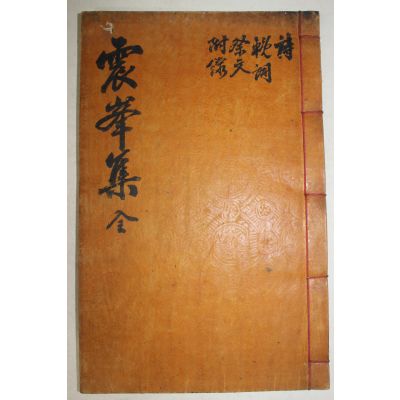 詩
輓詞
祭文
附錄
震峯集 全